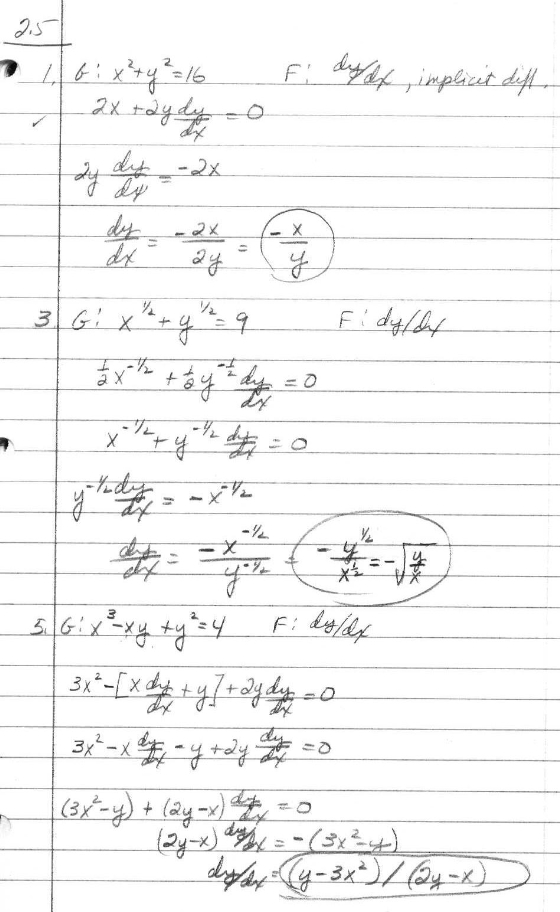 2.5
1. G: x²+y²=16 F: dy/dx, implicit diff.
✓ 2x + 2y dy/dx = 0
2y dy/dx = -2x
dy/dx = -2x/2y = -x/y
3. G: x^1/2 + y^1/2 = 9 F: dy/dx
1/2 x^-1/2 + 1/2 y^-1/2 dy/dx = 0
x^-1/2 + y^-1/2 dy/dx = 0
y^-1/2 dy/dx = -x^-1/2
dy/dx = -x^-1/2 / y^-1/2 = -y^1/2 / x^1/2 = -√(y/x)
5. G: x³-xy+y²=4 F: dy/dx
3x²-[x dy/dx + y] + 2y dy/dx = 0
3x²-x dy/dx - y + 2y dy/dx = 0
(3x²-y) + (2y-x) dy/dx = 0
(2y-x) dy/dx = -(3x²-y)
dy/dx = (y-3x²)/(2y-x)